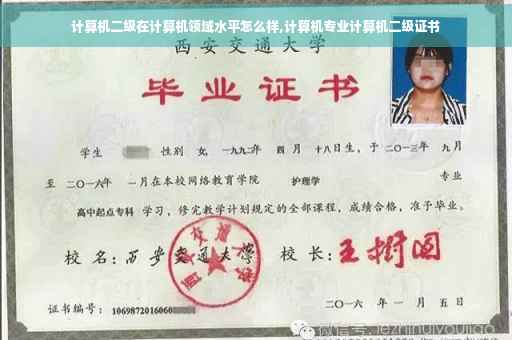 计算机二级在计算机领域水平怎么样,计算机专业计算机二级证书
西安交通大学
毕业证书
学生 性别 女,一九九二年 四 月 十八日生,于 二〇一三年 九月
至 二〇一六年 一月在本校网络教育学院 护理学 专业
高中起点专科 学习,修完教学计划规定的全部课程,成绩合格,准予毕业。
校 名:西安交通大学 校 长:王树国
西安交通大学
证书编号:1069872016060
二〇一六 年 一 月 五 日
微信号:lezhihuiyoujiao